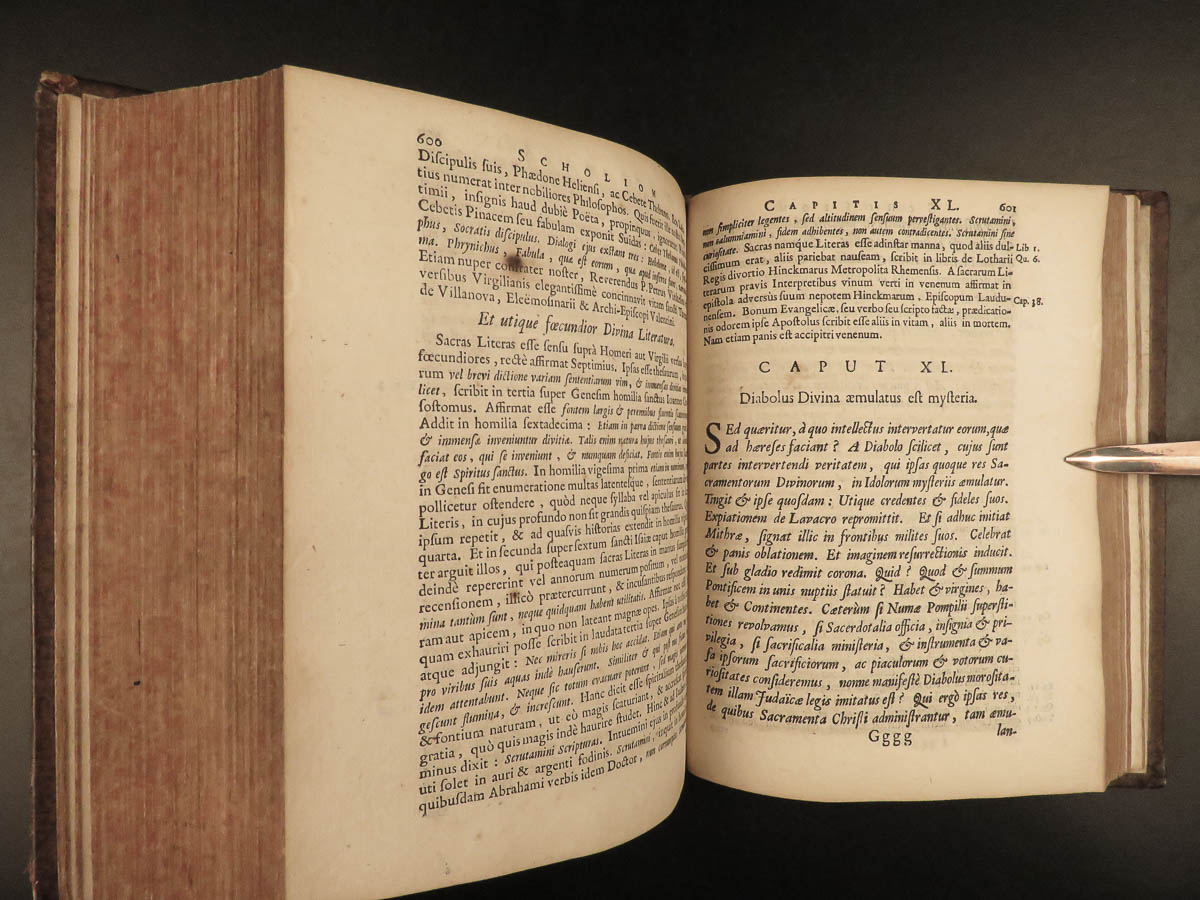 600
SCHOLION
Discipulis suis, Phædone Heliensi, ac Cebete Thebano,
tius numerat inter nobiliores Philosophos. Quis fuerit ille
timii, insignis haud dubiè Poëta, propinquus, ignoratur.
Cebetis Pinacem seu fabulam exponit Suidas: Cebes Thebanus
phus, Socratis discipulus. Dialogi ejus exstant tres: Hebdome,
ma. Phrynichus, Fabula, quæ est eorum, quæ apud inferos sunt,
Etiam nuper confrater noster, Reverendus P. Petrus
versibus Virgilianis elegantissimè concinnavit vitam sancti
de Villanova, Eleëmosinarii & Archi-Episcopi Valentini.
Et utique fœcundior Divina Literatura.
Sacras Literas esse sensu suprà Homeri aut Virgilii versus
fœcundiores, rectè affirmat Septimius. Ipsas esse thesaurum,
rum vel brevi dictione variam sententiarum vim, & immensas divitias
licet, scribit in tertia super Genesim homilia sanctus Ioannes
sostomus. Affirmat esse fontem largis & perennibus fluentis
Addit in homilia sextadecima: Etiam in parva dictione sensum
& immensæ inveniuntur divitiæ. Talis enim natura hujus thesauri,
faciat eos, qui se inveniunt, & nunquam deficiat. Fontis enim
go est Spiritus sanctus. In homilia vigesima prima etiam in
in Genesi fit enumeratione multas latentesque, sententiarum
pollicetur ostendere, quòd neque syllaba vel apiculus sit in
Literis, in cujus profundo non sit grandis quispiam thesaurus.
ipsum repetit, & ad quasvis historias extendit in homilia
quarta. Et in secunda super sextum sancti Isaiæ caput homilia
ter arguit illos, qui posteaquam sacras Literas in manus
deindè repererint vel annorum numerum positum, vel
recensionem, illicò prætercurrunt, & incusantibus respondent
mina tantùm sunt, neque quidquam habent utilitatis. Affirmat nec
ram aut apicem, in quo non lateant magnæ opes. Ipsas
quam exhauriri posse scribit in laudata tertia super Genesim
atque adjungit: Nec mireris si nobis hoc accidat. Etiam
pro viribus suis aquas indè hauserunt. Similiter & qui post nos
idem attentabunt. Neque sic totum evacuare poterunt, sed magis
gescunt flumina, & increscunt. Hanc dicit esse spiritalium
& fontium naturam, ut eò magis scaturiant, & accrescat
gratia, quò quis magis indè haurire studet. Hinc & ad
minus dixit: Scrutamini Scripturas. Intuemini ejus in profundum
uti solet in auri & argenti fodinis. Scrutamini, inquit in
quibusdam Abrahami verbis idem Doctor, non
CAPITIS XL. 601
non simpliciter legentes, sed altitudinem sensuum pervestigantes. Scrutamini,
non calumniamini, fidem adhibentes, non autem contradicentes. Scrutamini sine
curiositate. Sacras namque Literas esse ad instar manna, quod aliis dul- Lib 1.
cissimum erat, aliis pariebat nauseam, scribit in libris de Lotharii Qu. 6.
Regis divortio Hinckmarus Metropolita Rhemensis. A sacrarum Li-
terarum pravis Interpretibus vinum verti in venenum affirmat in
epistola adversùs suum nepotem Hinckmarum, Episcopum Laudu- Cap. 38.
nensem. Bonum Evangelicæ, seu verbo seu scripto factæ, prædicatio-
nis odorem ipse Apostolus scribit esse aliis in vitam, aliis in mortem.
Nam etiam panis est accipitri venenum.
CAPUT XL.
Diabolus Divina æmulatus est mysteria.
SED quæritur, à quo intellectus intervertatur eorum, quæ
ad hæreses faciant? A Diabolo scilicet, cujus sunt
partes intervertendi veritatem, qui ipsas quoque res Sa-
cramentorum Divinorum, in Idolorum mysteriis æmulatur.
Tingit & ipse quosdam: Utique credentes & fideles suos.
Expiationem de Lavacro repromittit. Et si adhuc initiat
Mithræ, signat illic in frontibus milites suos. Celebrat
& panis oblationem. Et imaginem resurrectionis inducit.
Et sub gladio redimit corona. Quid? Quod & summum
Pontificem in unis nuptiis statuit? Habet & virgines, ha-
bet & Continentes. Cæterùm si Numæ Pompilii supersti-
tiones revolvamus, si Sacerdotalia officia, insignia & pri-
vilegia, si sacrificalia ministeria, & instrumenta & va-
sa ipsorum sacrificiorum, ac piaculorum & votorum cu-
riositates consideremus, nonne manifestè Diabolus morosita-
tem illam Judaïcæ legis imitatus est? Qui ergò ipsas res,
de quibus Sacramenta Christi administrantur, tam æmu-
Gggg lan-